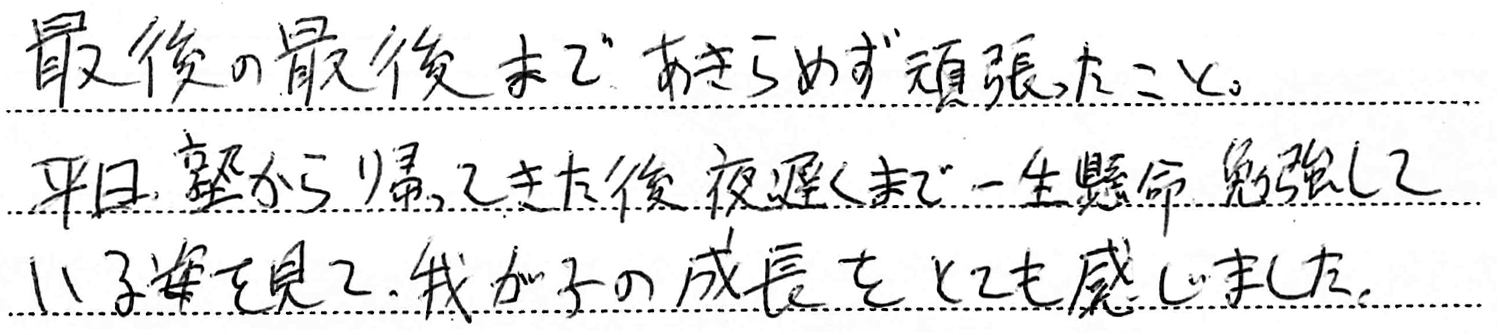 最後の最後まであきらめず頑張ったこと。
平日、塾から帰ってきた後夜遅くまで一生懸命勉強して
いる姿を見て、我が子の成長をとても感じました。